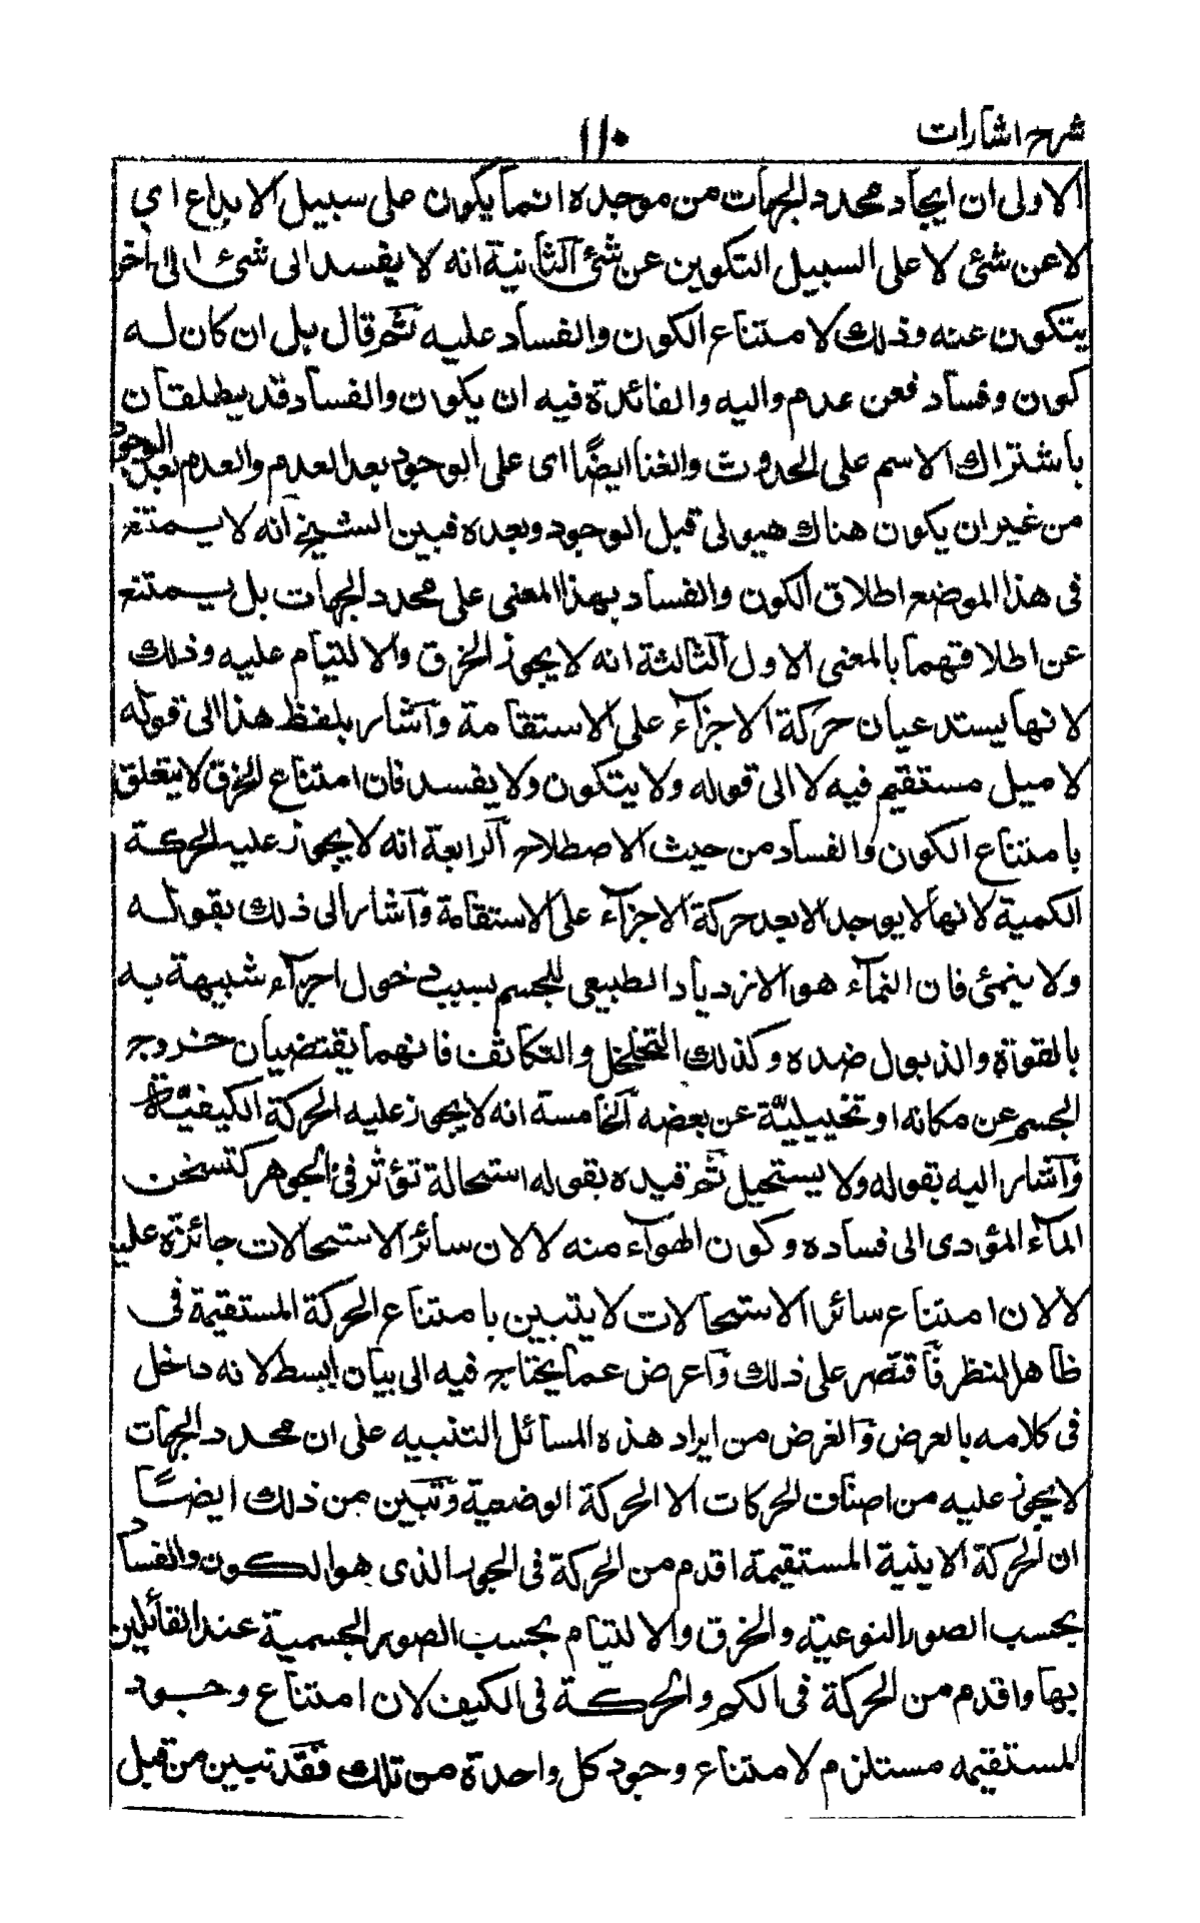 شرح اشارات
١١٠
الاولى ان ايجاد محدد الجهات من موجده انما يكون على سبيل الابداع اي
لا عن شئ لا على السبيل التكوين عن شئ الثانية انه لا يفسد الى شئ اخر
يتكون عنه وذلك لامتناع الكون والفساد عليه ثم قال بل ان كان له
كون وفساد فعن عدم واليه والفائدة فيه ان يكون والفساد قد يطلقان
باشتراك الاسم على الحدوث والغنا ايضًا اى على الوجود بعد العدم والعدم بعد الوجود
من غير ان يكون هناك هيولى قبل الوجود وبعده فبين الشيخ انه لا يمتنع
فى هذا الموضع اطلاق الكون والفساد بهذا المعنى على محدد الجهات بل يمتنع
عن اطلاقهما بالمعنى الاول الثالثة انه لا يجوز الخرق والالتيام عليه وذلك
لانها يستدعيان حركة الاجزآء على الاستقامة وآشار بلفظ هذا الى قوله
لا ميل مستقيم فيه لا الى قوله ولا يتكون ولا يفسد فان امتناع الخرق لا يتعلق
بامتناع الكون والفساد من حيث الاصطلاح الرابعة انه لا يجوز عليه الحركة
الكمية لانها لا يوجد الا بعد حركة الاجزآء على الاستقامة وآشار الى ذلك بقوله
ولا ينمئى فان النمآء هو الازدياد الطبيعى للجسم بسبب دخول اجزآء شبيهة به
بالقوة والذبول ضده وكذلك التخلخل والتكاثف فانهما يقتضيان خروج
الجسم عن مكانه او تخييليّة عن بعضه الخامسة انه لا يجوز عليه الحركة الكيفيّة
وآشار اليه بقوله ولا يستحيل ثم قيده بقوله استحالة تؤثر فى الجوهر كتسخن
المآء المؤدى الى فساده وكون الهوآء منه لا لان سائر الاستحالات جائزة عليه
لا لان امتناع سائر الاستحالات لا يتبين بامتناع الحركة المستقيمة فى
ظاهر النظر فآقتصر على ذلك وآعرض عما يحتاج فيه الى بيان ابسط لانه داخل
فى كلامه بالعرض وآلغرض من ايراد هذه المسائل التنبيه على ان محدد الجهات
لا يجوز عليه من اصناف الحركات الا الحركة الوضعية وتبين من ذلك ايضًا
ان الحركة الاينية المستقيمة اقدم من الحركة فى الجوهر الذى هو الكون والفساد
بحسب الصور النوعية والخرق والالتيام بحسب الصور الجسمية عند القائلين
بها واقدم من الحركة فى الكم والحركة فى الكيف لان امتناع وجود
المستقيمه مستلزم لامتناع وجود كل واحدة من تلك فقد تبين من قبل